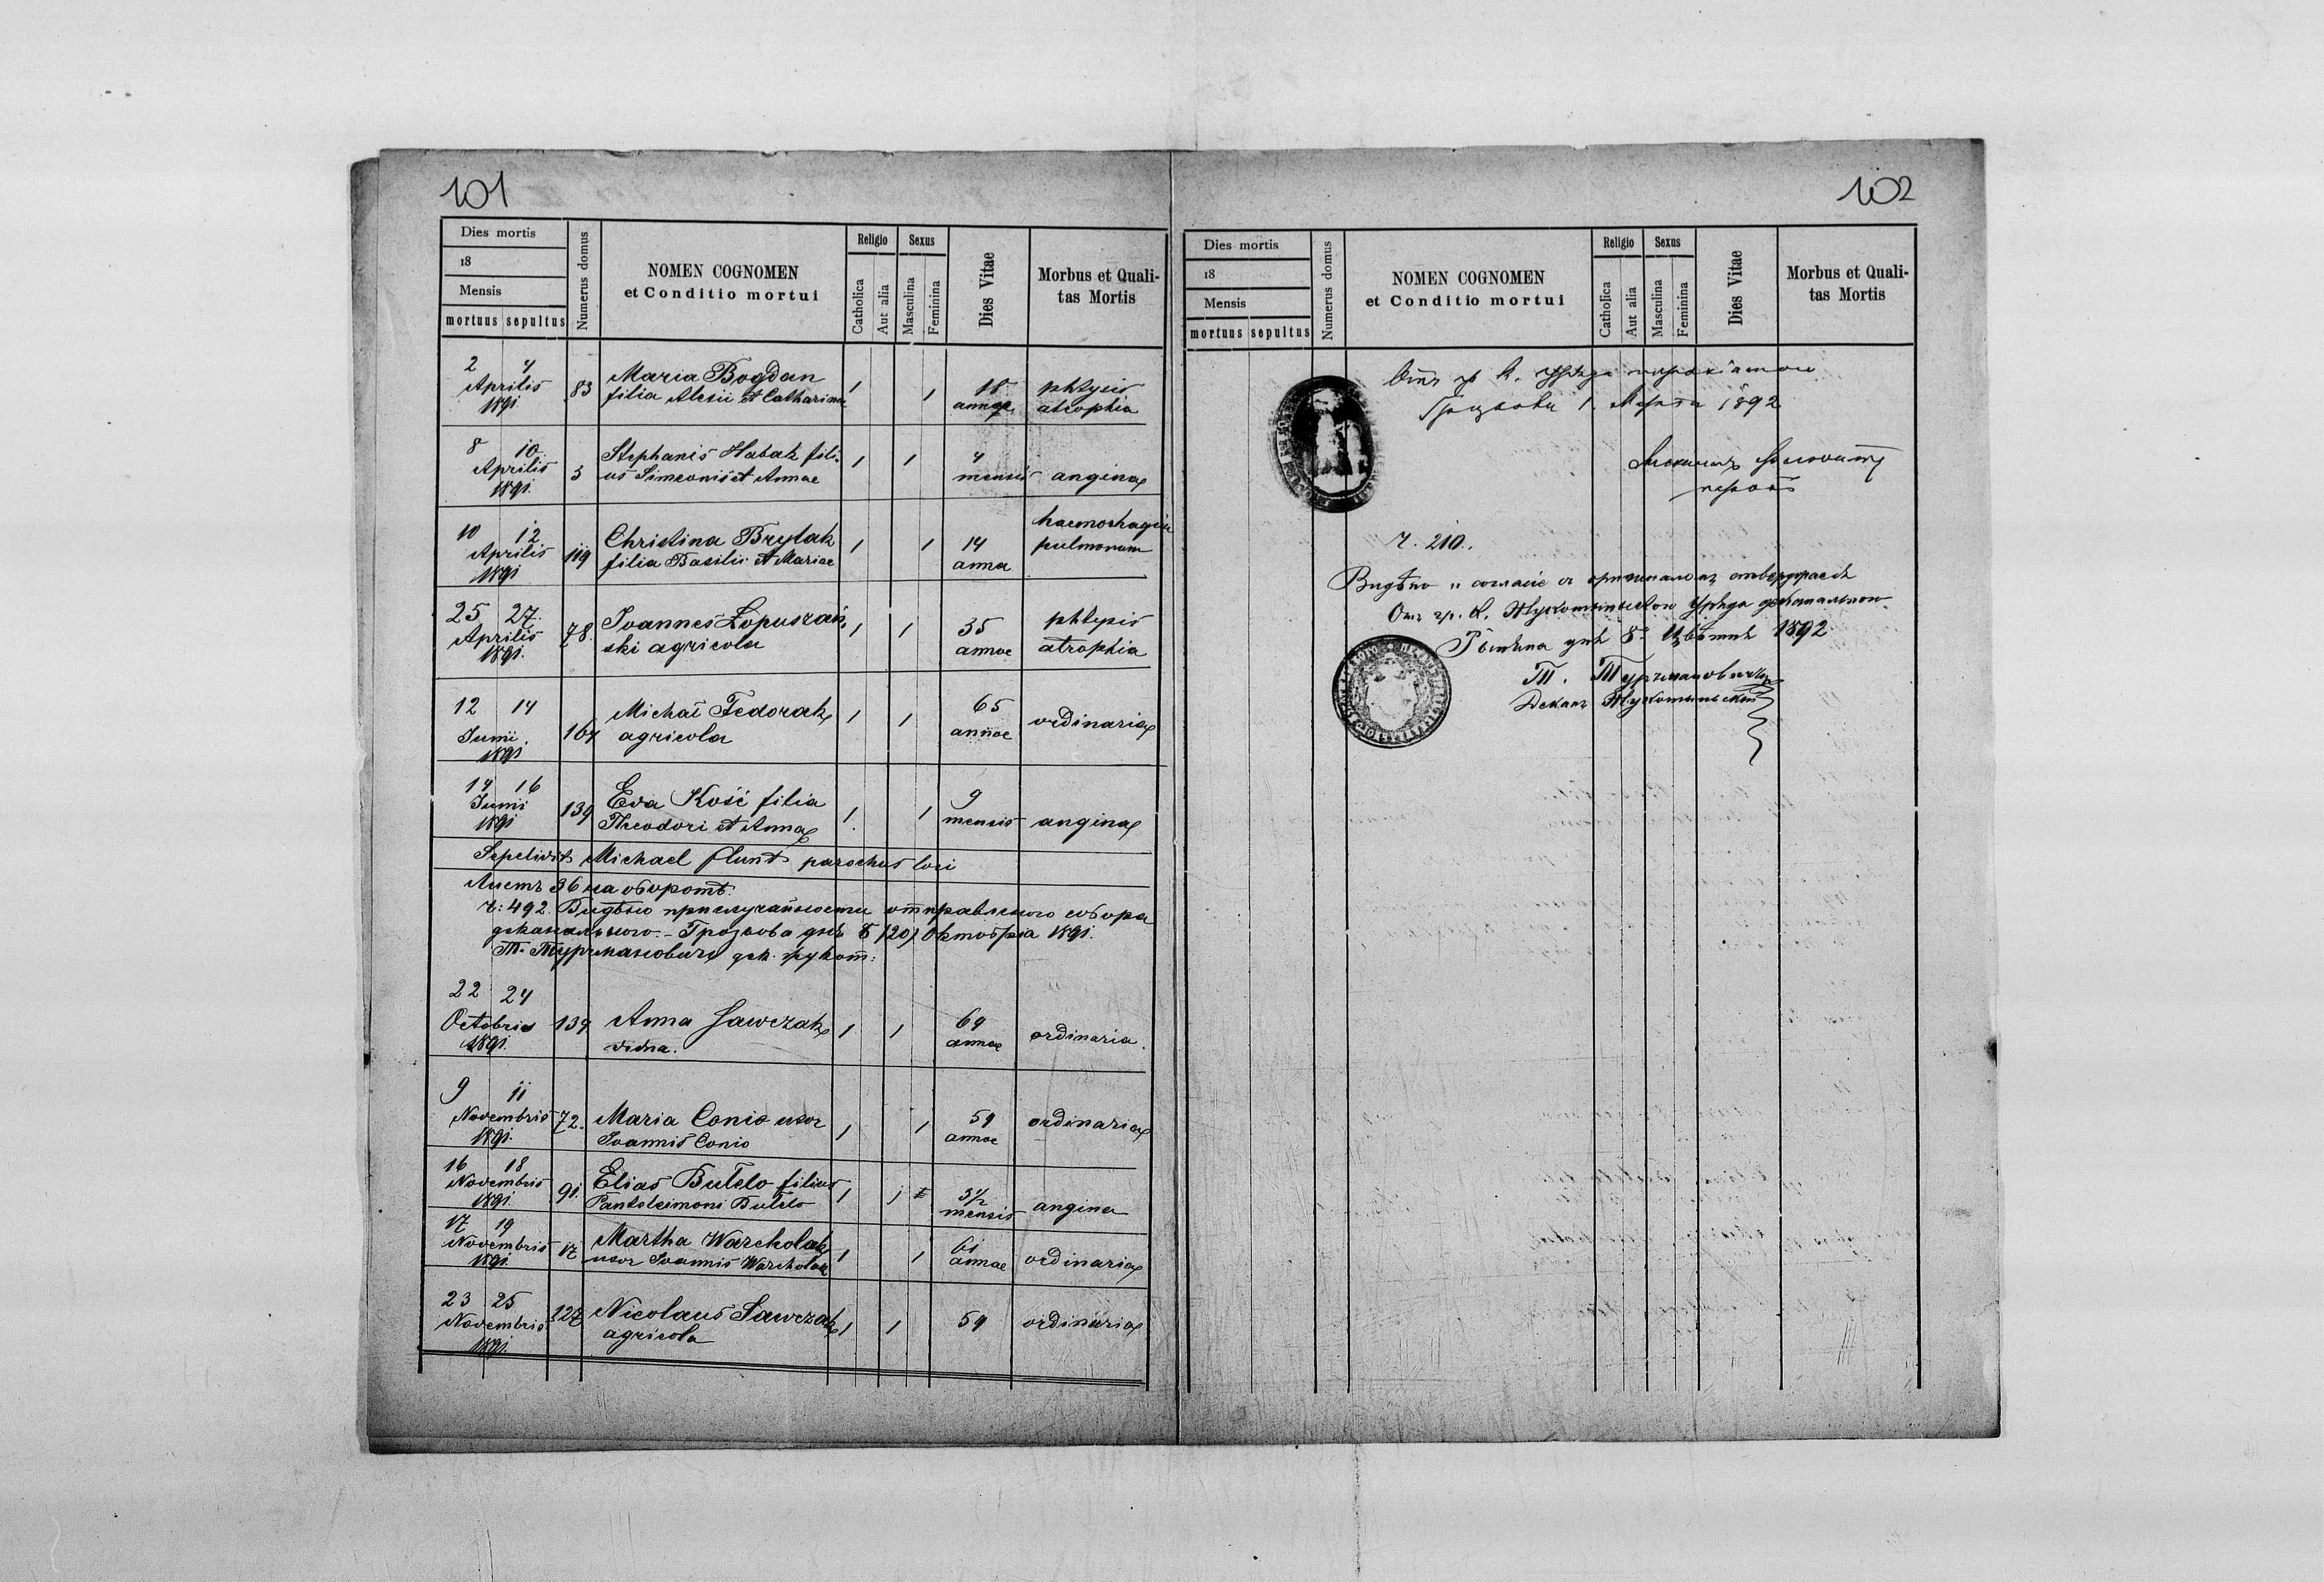 101
Dies mortis
18
Mensis
mortuus sepultus
Numerus domus
NOMEN COGNOMEN
et Conditio mortui
Religio
Catholica
Aut alia
Sexus
Masculina
Feminina
Dies Vitae
Morbus et Quali-
tas Mortis
2 4
Aprilis
1891
83
Maria Bogdan
filia Alexii et Catharinae
1 1
18
annae
phtysis
atrophia
8 10
Aprilis
1891.
3
Stephanis Habak fili-
us Simeonis et Annae
1 1
4
mensis
angina
10 12
Aprilis
1891
119
Christina Brytak
filia Basilii et Mariae
1 1
14
anna
haemorhagia
pulmonum
25 27.
Aprilis
1891.
78.
Ioannes Łopuszań-
ski agricola
1 1
35
annae
phtysis
atrophia
12 14
Junii.
1891
164
Michaī Fedorak
agricola
1 1
65
annae
ordinaria
14 16
Junii
1891
139
Eva Kość filia
Theodori et Anna
1. 1
9
mensis
angina
Sepelivit Michael parochus loci
Листъ 36 на оборотѣ.
ч: 492. Видѣно при случайности отправленого собора
деканального. - Грозьова днѧ 8 /20/ Октобрія 1891.
Т. Турчмановичъ дек. жукот:
22 24
Octobris
1891.
139
Anna Sawczak
vidna.
1 1
69
annae
ordinaria.
9 11
Novembris
1891.
72.
Maria Conio uxor
Joannis Conio
1 1
59
annae
ordinaria
16 18
Novembris
1891.
91.
Elias Butelo filius
Pantoleimoni Butelo
1 1
3 1/2
mensis
angina
17 19
Novembris
1891.
17
Martha Warcholak
uxor Joannis Warcholak
1 1
61
annae
ordinaria
23 25
Novembris
1891.
127
Nicolaus Sawczak
agricola
1 1
59
ordinaria
102
Dies mortis
18
Mensis
mortuus sepultus
Numerus domus
NOMEN COGNOMEN
et Conditio mortui
Religio
Catholica
Aut alia
Sexus
Masculina
Feminina
Dies Vitae
Morbus et Quali-
tas Mortis
Отъ гр. к.
1 Марта 1892
ч. 210.
Видѣно и согласіе съ оригиналомъ
Отъ гр. к. Жукотиньского Уряда деканального
днѧ 8 1892
Т. Турчмановичъ
Деканъ Жукотиньскій